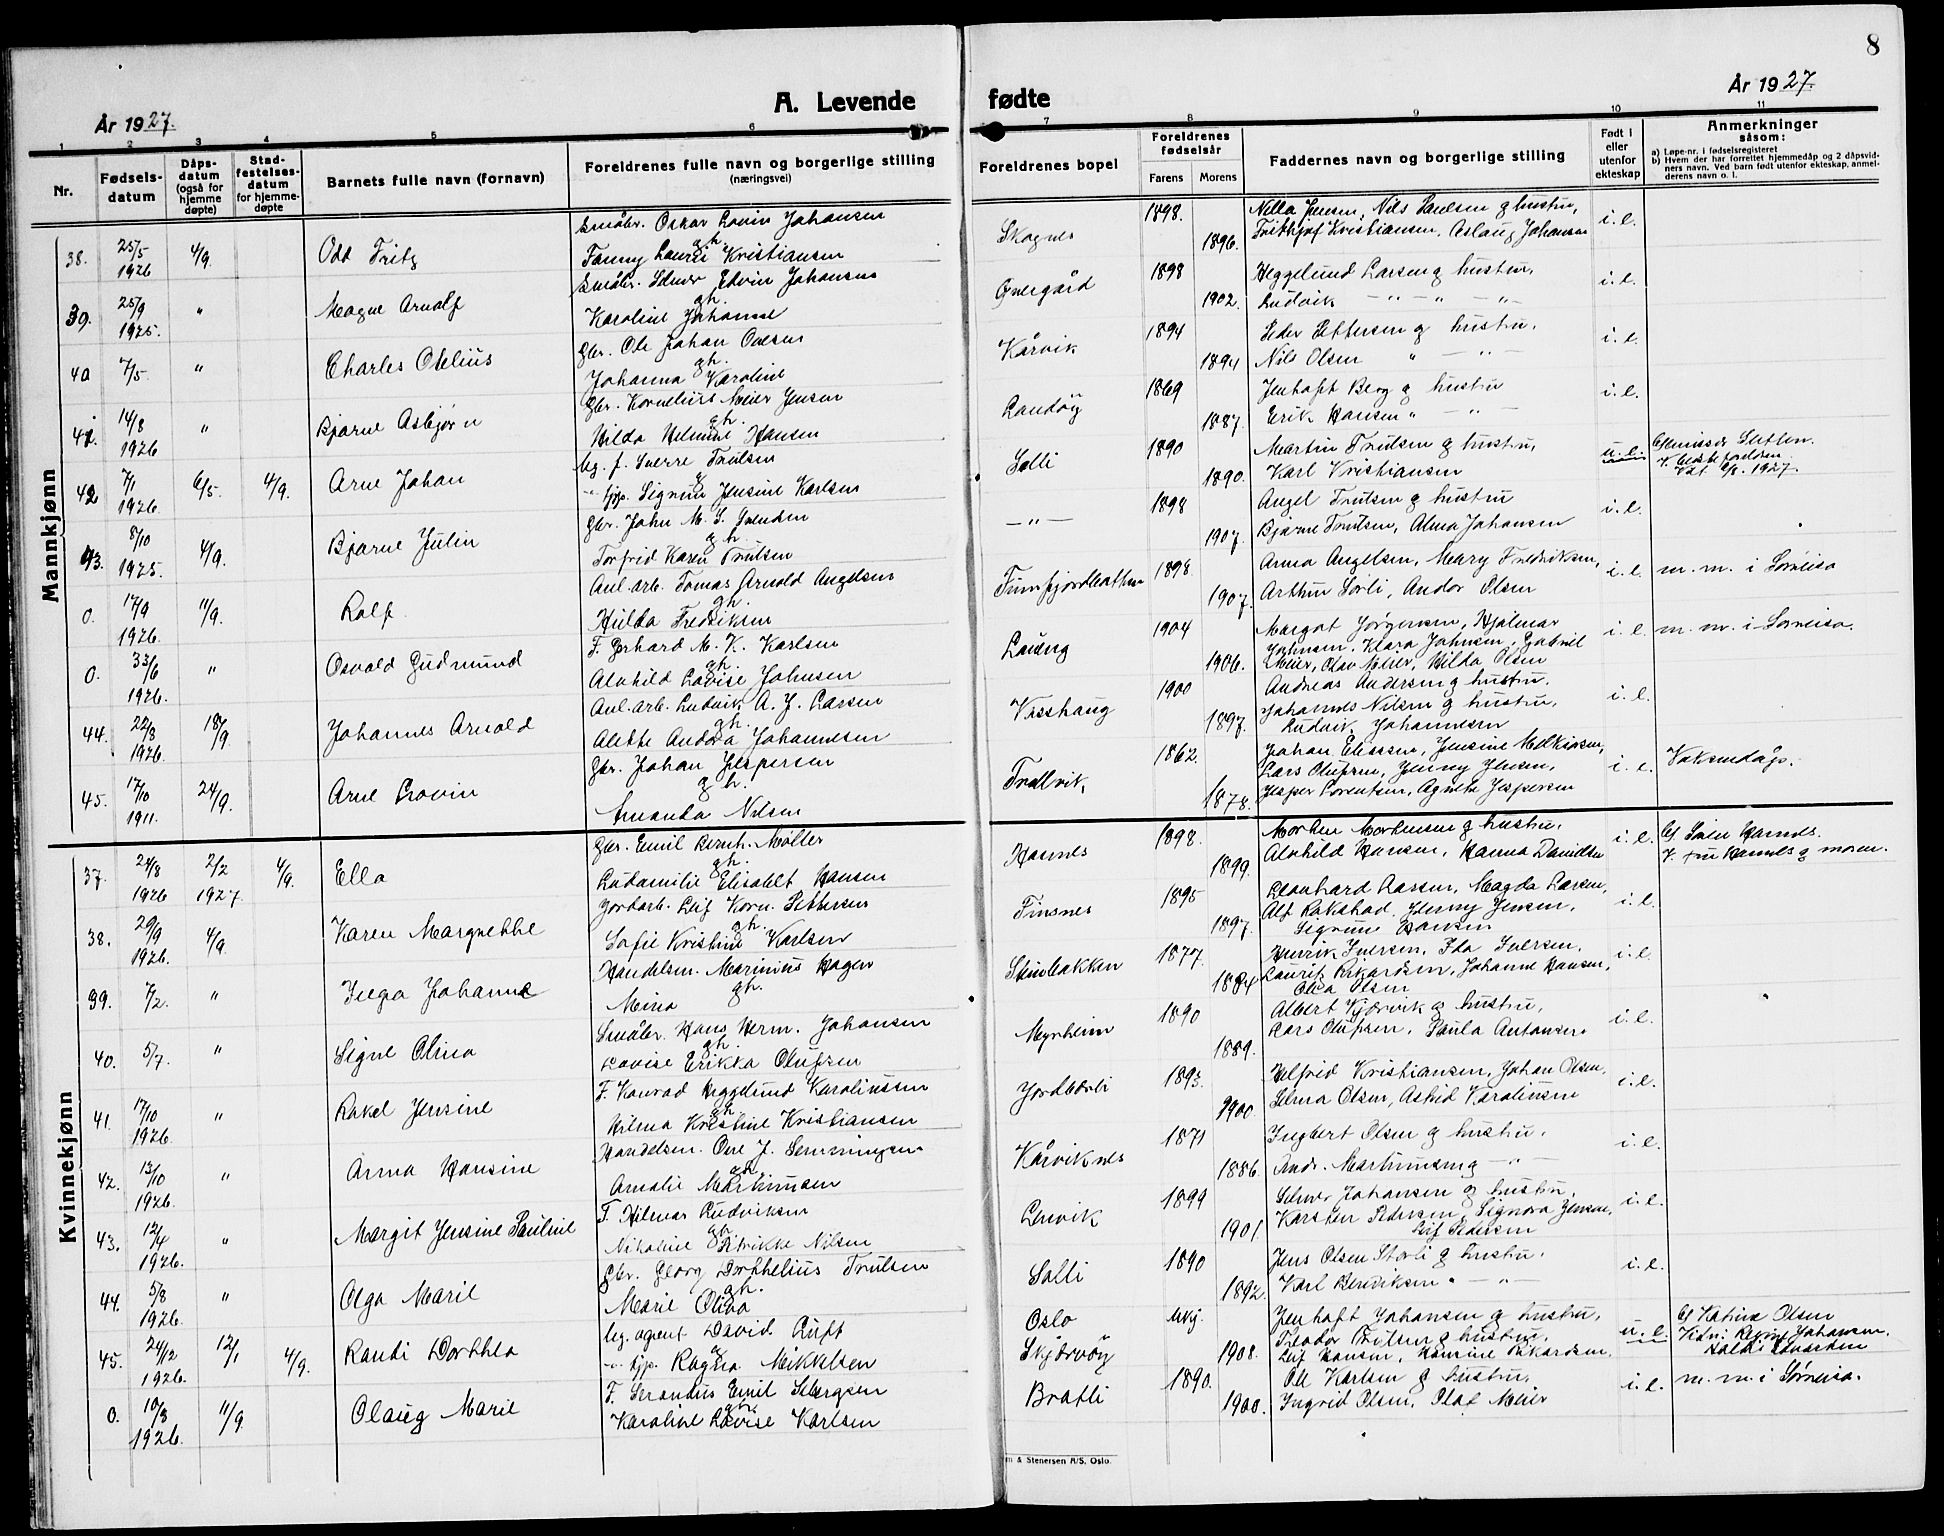 8
År 1927.
A. Levende fødte
År 1927.
1 2 3 4 5 6 7 8 9 10 11
Nr.
Fødselsdatum
Dåpsdatum (også for hjemmedøpte)
Stadfestelsesdatum for hjemmedøpte
Barnets fulle navn (fornavn)
Foreldrenes fulle navn og borgerlige stilling
(næringsvei)
Foreldrenes bopel
Foreldrenes fødselsår
Farens Morens
Faddernes navn og borgerlige stilling
Født i eller utenfor ekteskap
Anmerkninger
såsom:
a) Løpe-nr. i fødselsregisteret
b) Hvem der har forrettet hjemmedåp og 2 dåpsvidners navn. Ved barn født utenfor ekteskap, anmelderens navn o. l.
Mannkjønn
38. 25/5 1926 4/9. Odd Fritz
Småbr. Oskar Lovin Johansen
gh.
Fanny Kristiansen
Skognes 1898. 1896.
Nella Jensen, Nils Paulsen g hustru,
Fridthjof Kristiansen, Aslaug Johansen
i. e.
39. 25/9 1925. " Magne Arnolf
Småbr. Edvin Johansen
gh.
Karoline
Øvergård 1898 1902.
Heggelund Larsen g hustru,
Ludvik — " — " — " —
i. e.
40 7/5. " Charles Otelius
Gbr. Ole Johan Ovesen
gh.
Johanna Karoline
Kårvik 1894 1894
Peder Pettersen g hustru.
Nils Olsen " — " —
i. e.
41. 14/8 1926 " Bjarne Asbjørn
Gbr. Kornelius Meier Jensen
gh.
Hilda Hansen
Landøy 1869 1887.
Jenhaft Berg g hustru
Erik Hansen " — " —
i. e.
42 7/1 1926. 6/5. 4/9. Arne Johan
Ug. f. Sverre Trulsen
g
— " — Jensine Karlsen
Solli 1890 1890.
Martin Trulsen g hustru,
Karl Kristiansen
u. e.
1927.
43. 8/10 1925. 4/9. Bjarne Julin
Gbr. John M. S. Svendsen
gh.
Torfrid Karen Trulsen
— " — 1898 1907.
Angel Trulsen g hustru
Bjarne Trulsen, Alma Johansen
i. e.
0. 17/9 1926. 11/9. Rolf
Anl. arb. Tomas Arnold Angelsen
gh.
Hilda Fredriksen
1898. 1907.
Anna Angelsen, Mary Fredriksen,
Arthur Sørli, Andor Olsen
i. e. m. m. i Sørreisa
0. /6 1926. " Osvald Gudmund
F. Gerhard M. K. Karlsen
gh.
Alvhild Lovise Johnsen
1904 1906.
Margot Jørgensen, Hjalmar
Johnsen, Klara Johnsen, Gabriel
Meier, Olav Meier, Hilda Olsen
i. e. m. m. i Sørreisa.
44. 22/8 1926. 18/9. Johannes Arnold
Anl. arb. Ludvik A. J. Larsen
gh.
Alette Andora Johannesen
Visshaug 1900 1897.
Andreas Andersen g hustru.
Johannes Nilsen g hustru,
Ludvik Johannesen
i. e.
45. 17/10 1911. 24/9. Arne Lovin
Gbr. Johan Jespersen
gh.
Amanda Nilsen
Trollvik, 1862. 1878.
Johan Eliassen, Jensine Melkiorsen,
Lars Olufsen, Jenny Jensen,
Jesper Lorentsen, Agnete Jespersen
i. e. Voksendåp.
Kvinnekjønn
37. 24/8 1926 2/2 1927. 4/9. Ella
Gbr. Emil Bernh. Møller
gh.
Ludamilie Elisabet Hansen
Hannes 1898. 1899.
Morten Mortensen g hustru.
Alvhild Hansen, Hanna Danielsen
i. e.
38. 29/9 1926. 4/9. Karen Margrethe
Jordarb. Leif Korn. Pettersen
gh.
Sofie Kristine Karlsen
Finsnes 1895 1897.
Leonhard Larsen, Magda Larsen,
Alf Rokstad, Jenny Jensen,
Sigrun Hansen
i. e.
39. 7/2. " Inga Johanne
Handelsm. Marinius Hagen
gh.
Mina
Stenbakken 1877. 1884
Henrik Iversen, Ida Iversen,
Laurits Rikardsen, Johanne Hansen,
Olea Olsen
i. e.
40. 5/7. " Signe Olina
Småbr. Hans Herm. Johansen
gh.
Lovise Erikka Olufsen
Myrheim 1890 1889.
Albert Kjærvik g hustru,
Lars Olufsen, Paula Antonsen
i. e.
41. 17/10 1926. " Rakel Jensine
F. Konrad Heggelund Karolinssen
gh.
Hilma Kristine Kristiansen
Jordbærli 1893. 1900
Helfrid Kristiansen, Johan Olsen.
Selma Olsen, Astrid Karolinsen
i. e.
42. 13/10 1926. " Anna Hansine
Handelsm. Ove J. Semmingsen
gh.
Amalie Martinusen
Kårviknes 1871 1886.
Ingbert Olsen g hustru.
Andr. Martinusen g — " —
i. e.
43. 12/4 1926. " Margit Jensine Pauline
F. Hilmar Ludviksen
gh.
Nikoline Petrikke Nilsen
Lenvik 1899 1901.
Selmer Johansen g hustru,
Karsten Pedersen, Signora Jensen,
Leif Pedersen
i. e.
44. 5/8 1926. " Olga Marie
Gbr. Georg Dorthelius Trulsen
gh.
Marie Oliva
Solli 1890 1892.
Jens Olsen Storli g hustru.
Karl Bendiksen " — " —
i. e.
45. 24/12 1926. 12/1 4/9. Randi Dorthea
Ug. agent David Luft
g
— " — Ragna Mikkelsen
Oslo
Skjærvøy ukj. 1908.
Jenhaft Johansen g hustru,
Teodor Trulsen g hustru,
Leif Hansen, Hansine Rikardsen,
u. e.
Katrine Olsen
Johansen.
0. 10/8 1926. 11/9. Olaug Marie
F. Serandus Emil Sebergsen
gh.
Karoline Lovise Karlsen
Bratli 1890. 1900.
Ole Karlsen g hustru,
Ingrid Olsen, Olaf Meier
i. e. m. m. i Sørreisa.
m & Stenersen A/S. Oslo.